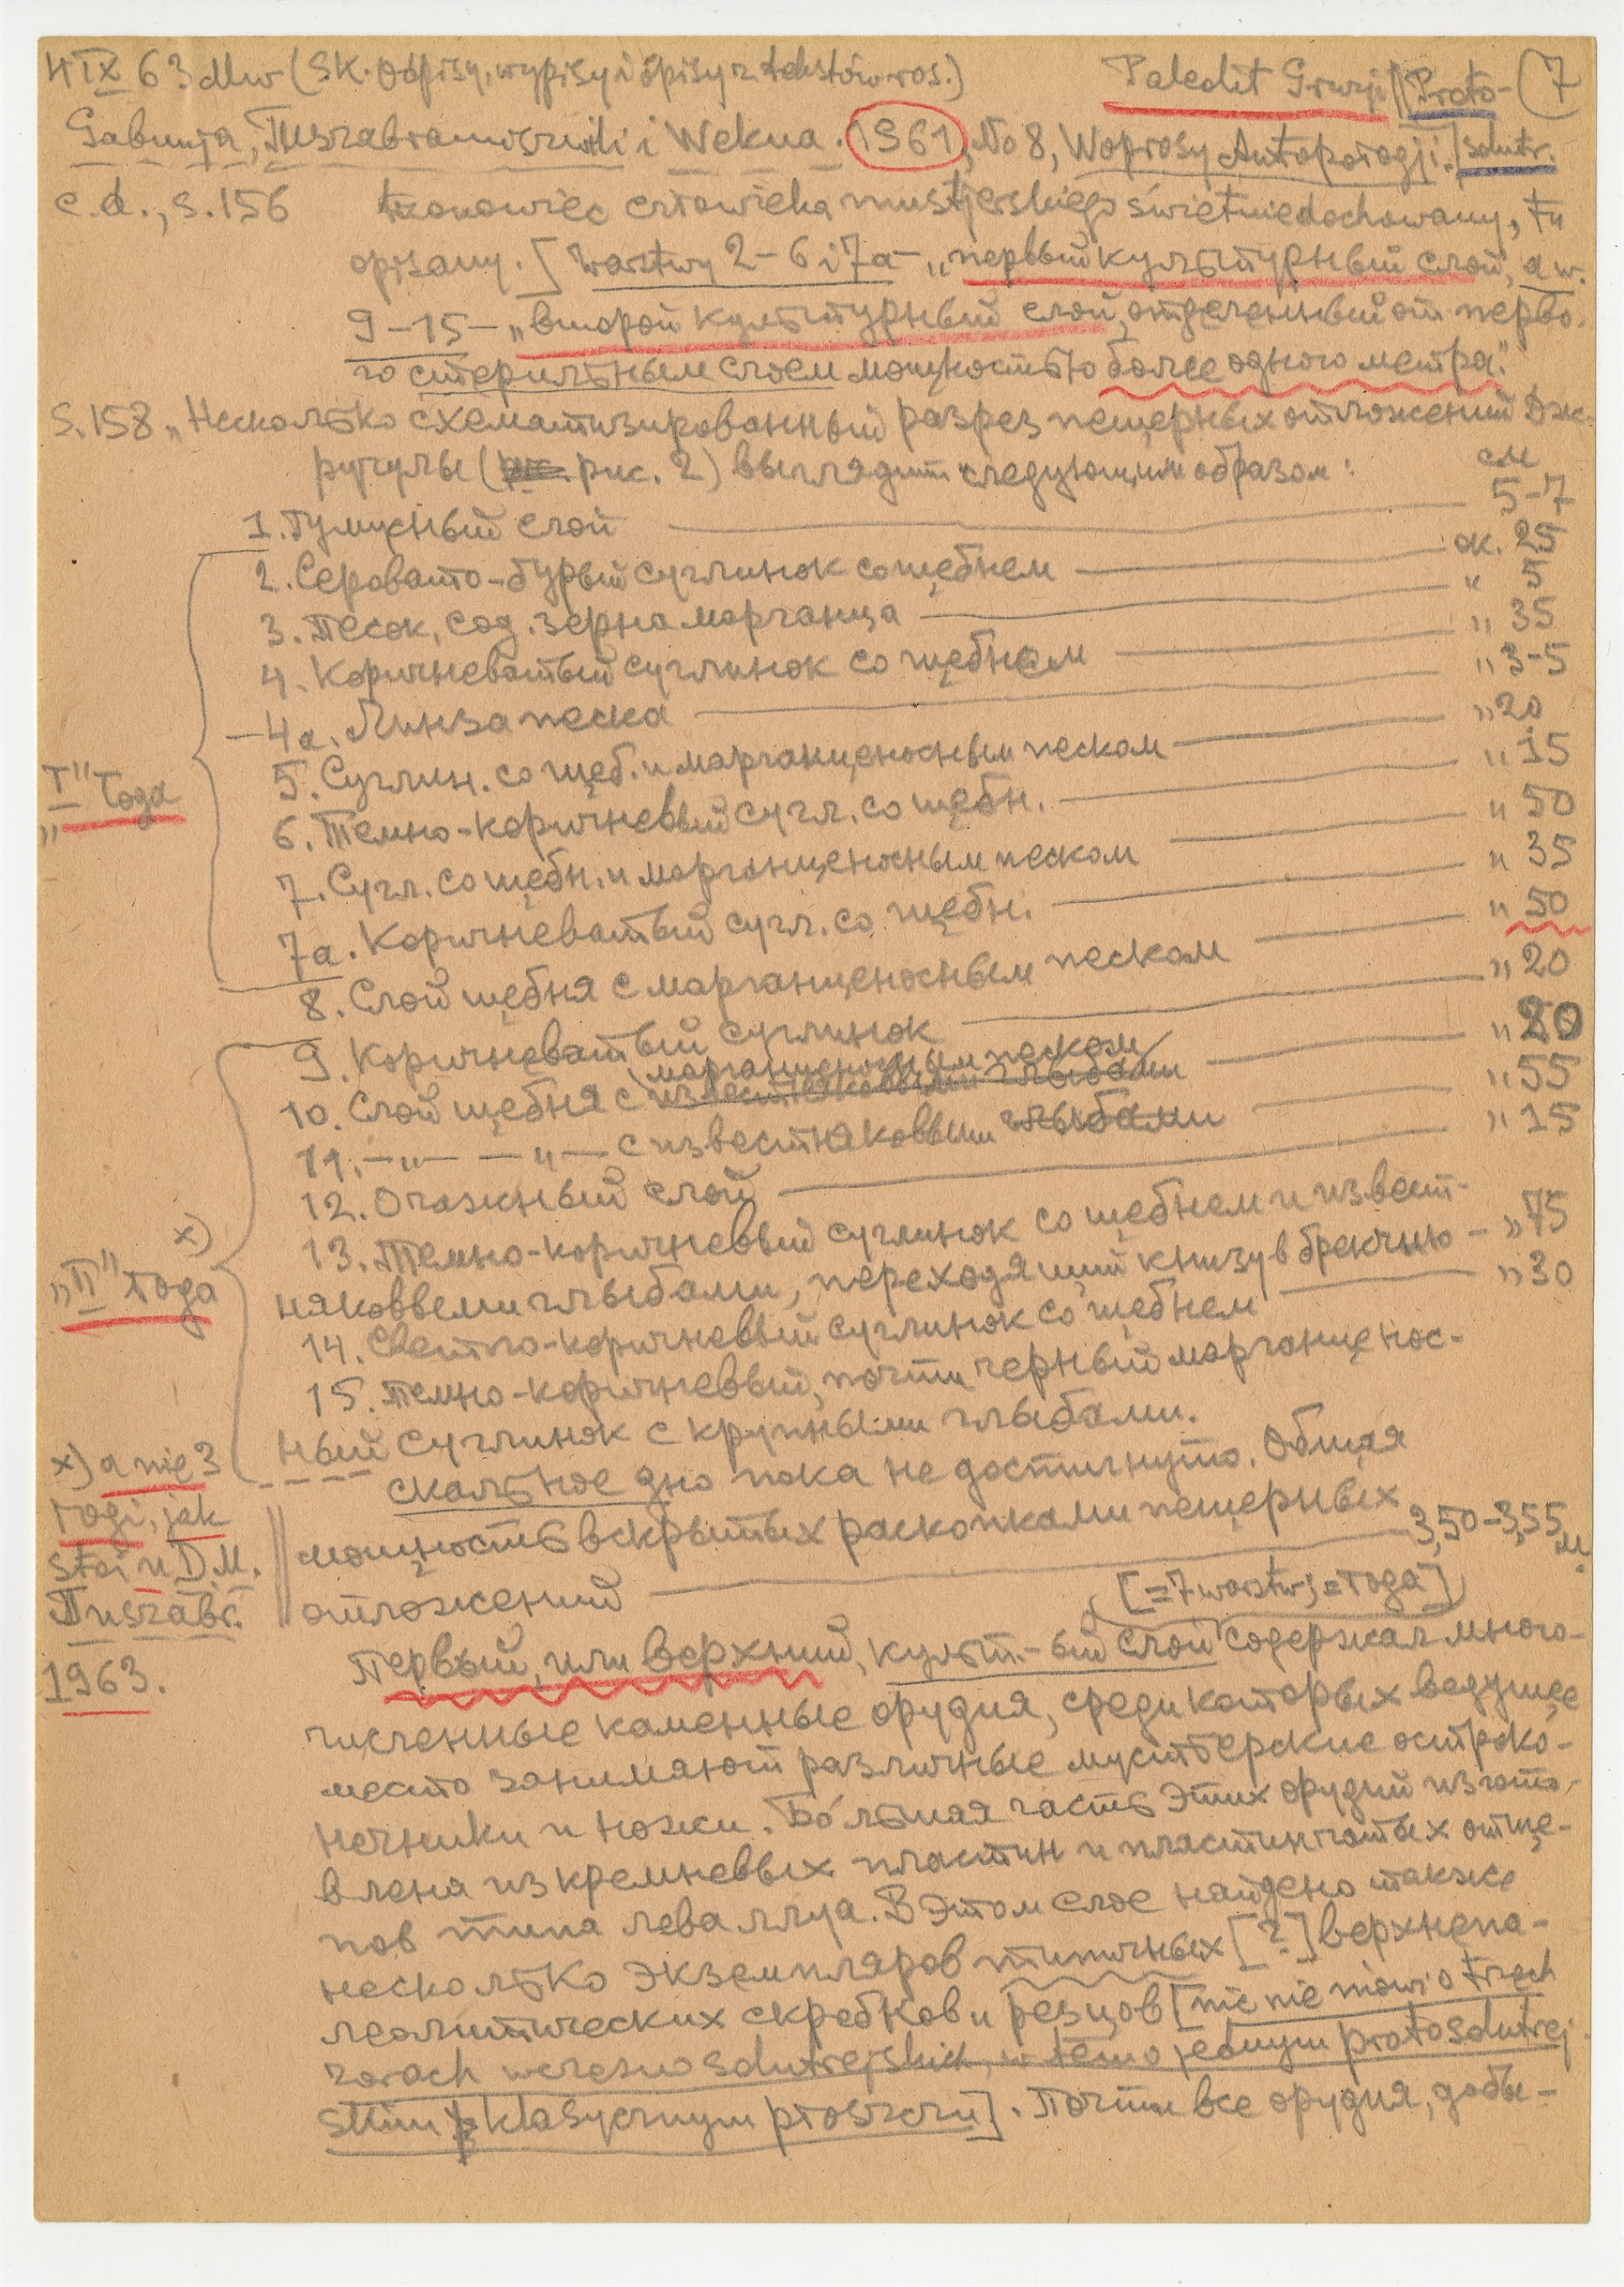 4 IX 63 Mw (SK. Odpisy, wypisy i opisy z tekstów ros.) Paleolit Gruzji Proto- 7
Gabunja, Tuszabramiszwili i Wekua. 1961, No 8, Woprosy Antropologji. solutr.
c.d., s. 156 trzonowiec człowieka mustjerskiego świetnie dochowany, tu
opisany. [Warstwy 2-6 i 7a - „первый культурный слой, a w.
9-15 - „второй культурный слой, отделенный от перво-
го стерильным слоем мощностью более одного метра."
S. 158 „Несколько схематизированный разрез пещерных отложений Дж-
ручулы (рис. 2) выглядит следующим образом: см
1. Гумусный слой 5-7
2. Серовато-бурый суглинок со щебнем ок. 25
3. Песок, сод. зерна марганца " 5
4. Коричневатый суглинок со щебнем " 35
4a. Линза песка " 3-5
5. Суглин. со щеб. и марганценосным песком " 20
6. Темно-коричневый сугл. со щебн. " 15
7. Сугл. со щебн. и марганценосным песком " 50
7a. Коричневатый сугл. со щебн. " 35
8. Слой щебня с марганценосным песком " 50
9. Коричневатый суглинок " 20
марганценосным песком
10. Слой щебня с известняковыми глыбами " 20
11. —"— —"— с известняковыми глыбами " 55
12. Очажный слой " 15
13. Темно-коричневый суглинок со щебнем и извест-
няковыми глыбами, переходящий книзу в брекчию - " 75
14. Светло-коричневый суглинок со щебнем " 30
15. Темно-коричневый, почти черный марганценос-
ный суглинок с крупными глыбами.
„I" łoga
x)
„II" łoga
x) a nie 3
łogi, jak
stoi u D.M.
Tuszabr.
1963.
скальное дно пока не достигнуто. Общая
мощность вскрытых раскопками пещерных
отложений 3,50-3,55 м.
[=7 warstw; = łoga]
Первый, или верхний, культ.-ый слой содержал много-
численные каменные орудия, среди которых ведущее
место занимают различные мустьерские остроко-
нечники и ножи. Бо́льшая часть этих орудий изгото-
влена из кремневых пластин и пластинчатых отще-
пов типа леваллуа. В этом слое найдено также
несколько экземпляров типичных [?] верхнепа-
леолитических скребков и резцов [nic nie mówi o trzech
żarach wczesno solutrejskich, w tem o jednym protosolutrej-
skim z klasycznym płoszczu]. Почти все орудия, добы-